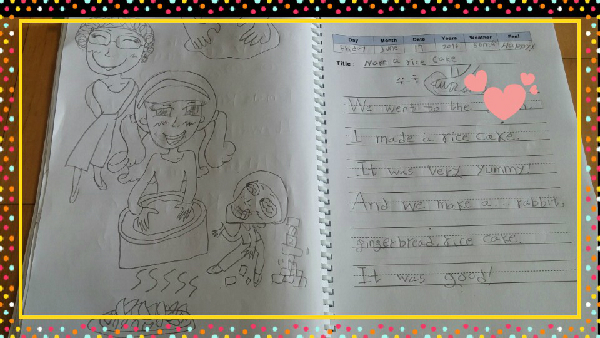 Day Month Date Years Weather Feel
Friday June
Title: Now a rice cake
We went to the
I made a rice cake.
It was very yummy!
And we make a rabbit,
gingerbread, rice cake.
It was good!